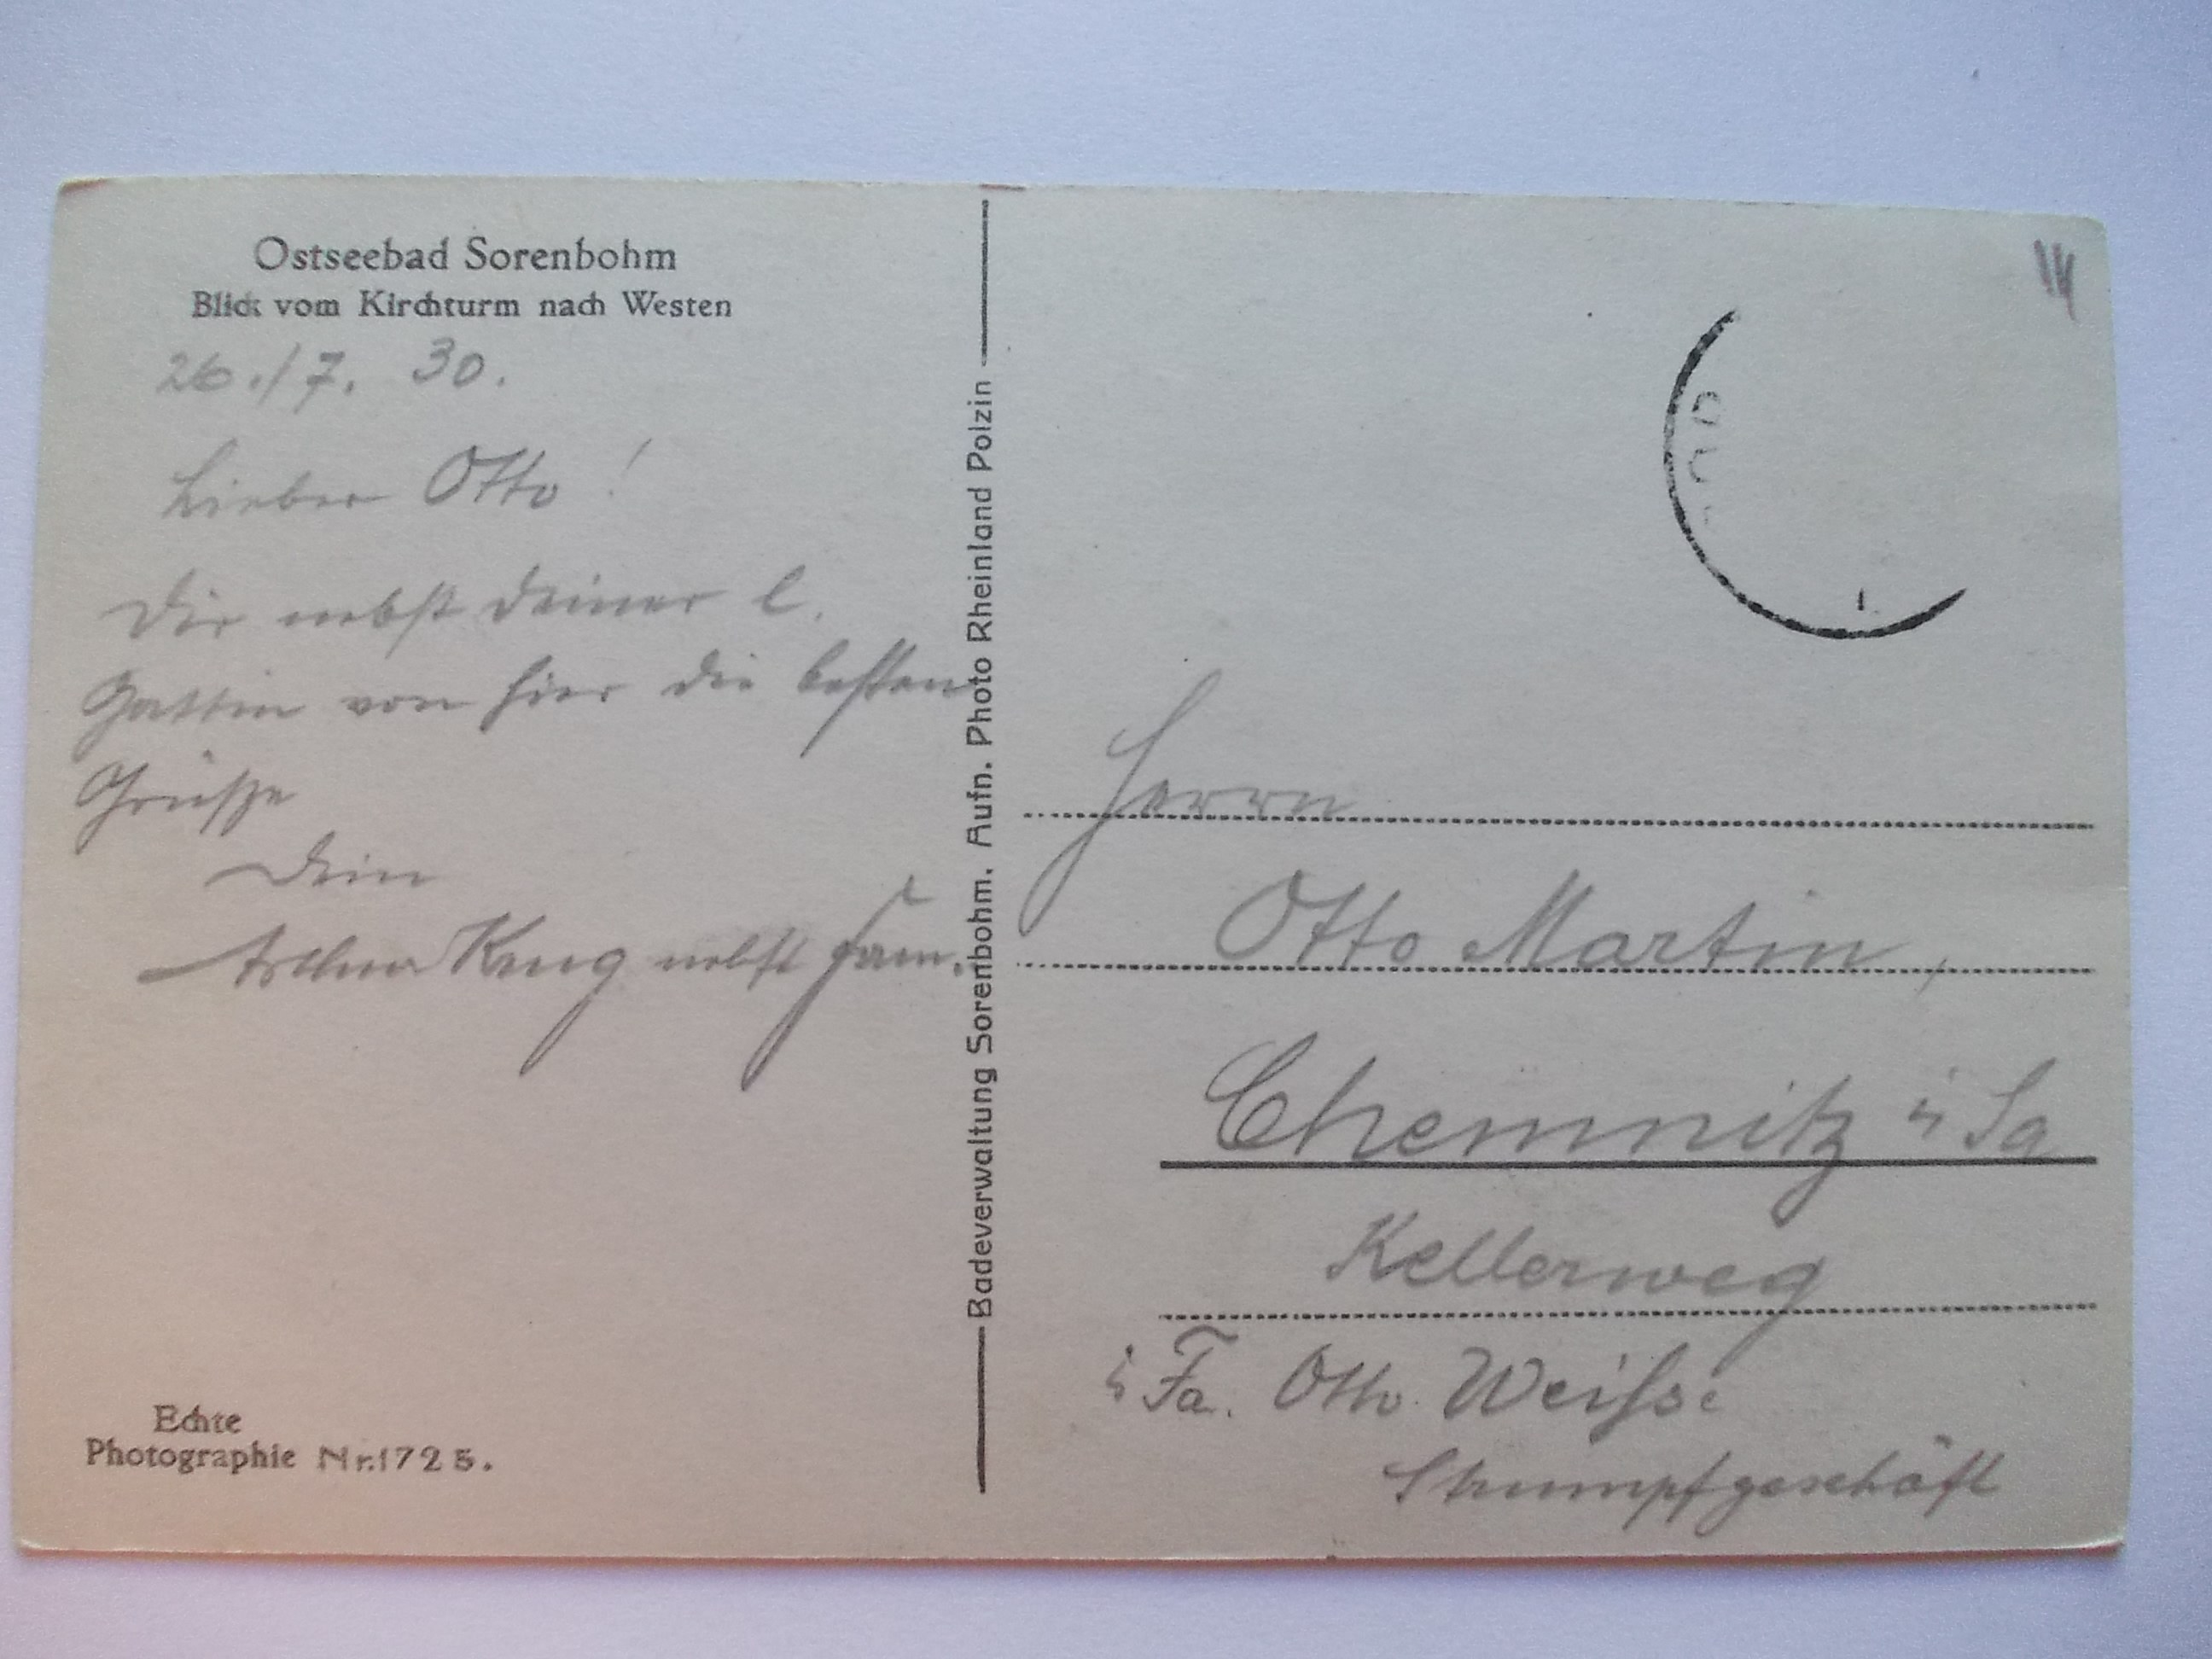 Ostseebad Sorenbohm
Blick vom Kirchturm nach Westen
26./7. 30.
Lieber Otto!
Dir nebst deiner l.
Gattin von hier die besten
Grüsse
Dein
Arthur Krug nebst Fam.
Echte
Photographie Nr.1725.
Badeverwaltung Sorenbohm. Aufn. Photo Rheinland Polzin
Herrn
Otto Martin,
Chemnitz i Sa
Kellerweg
i Fa. Otto Weisse
Strumpfgeschäft